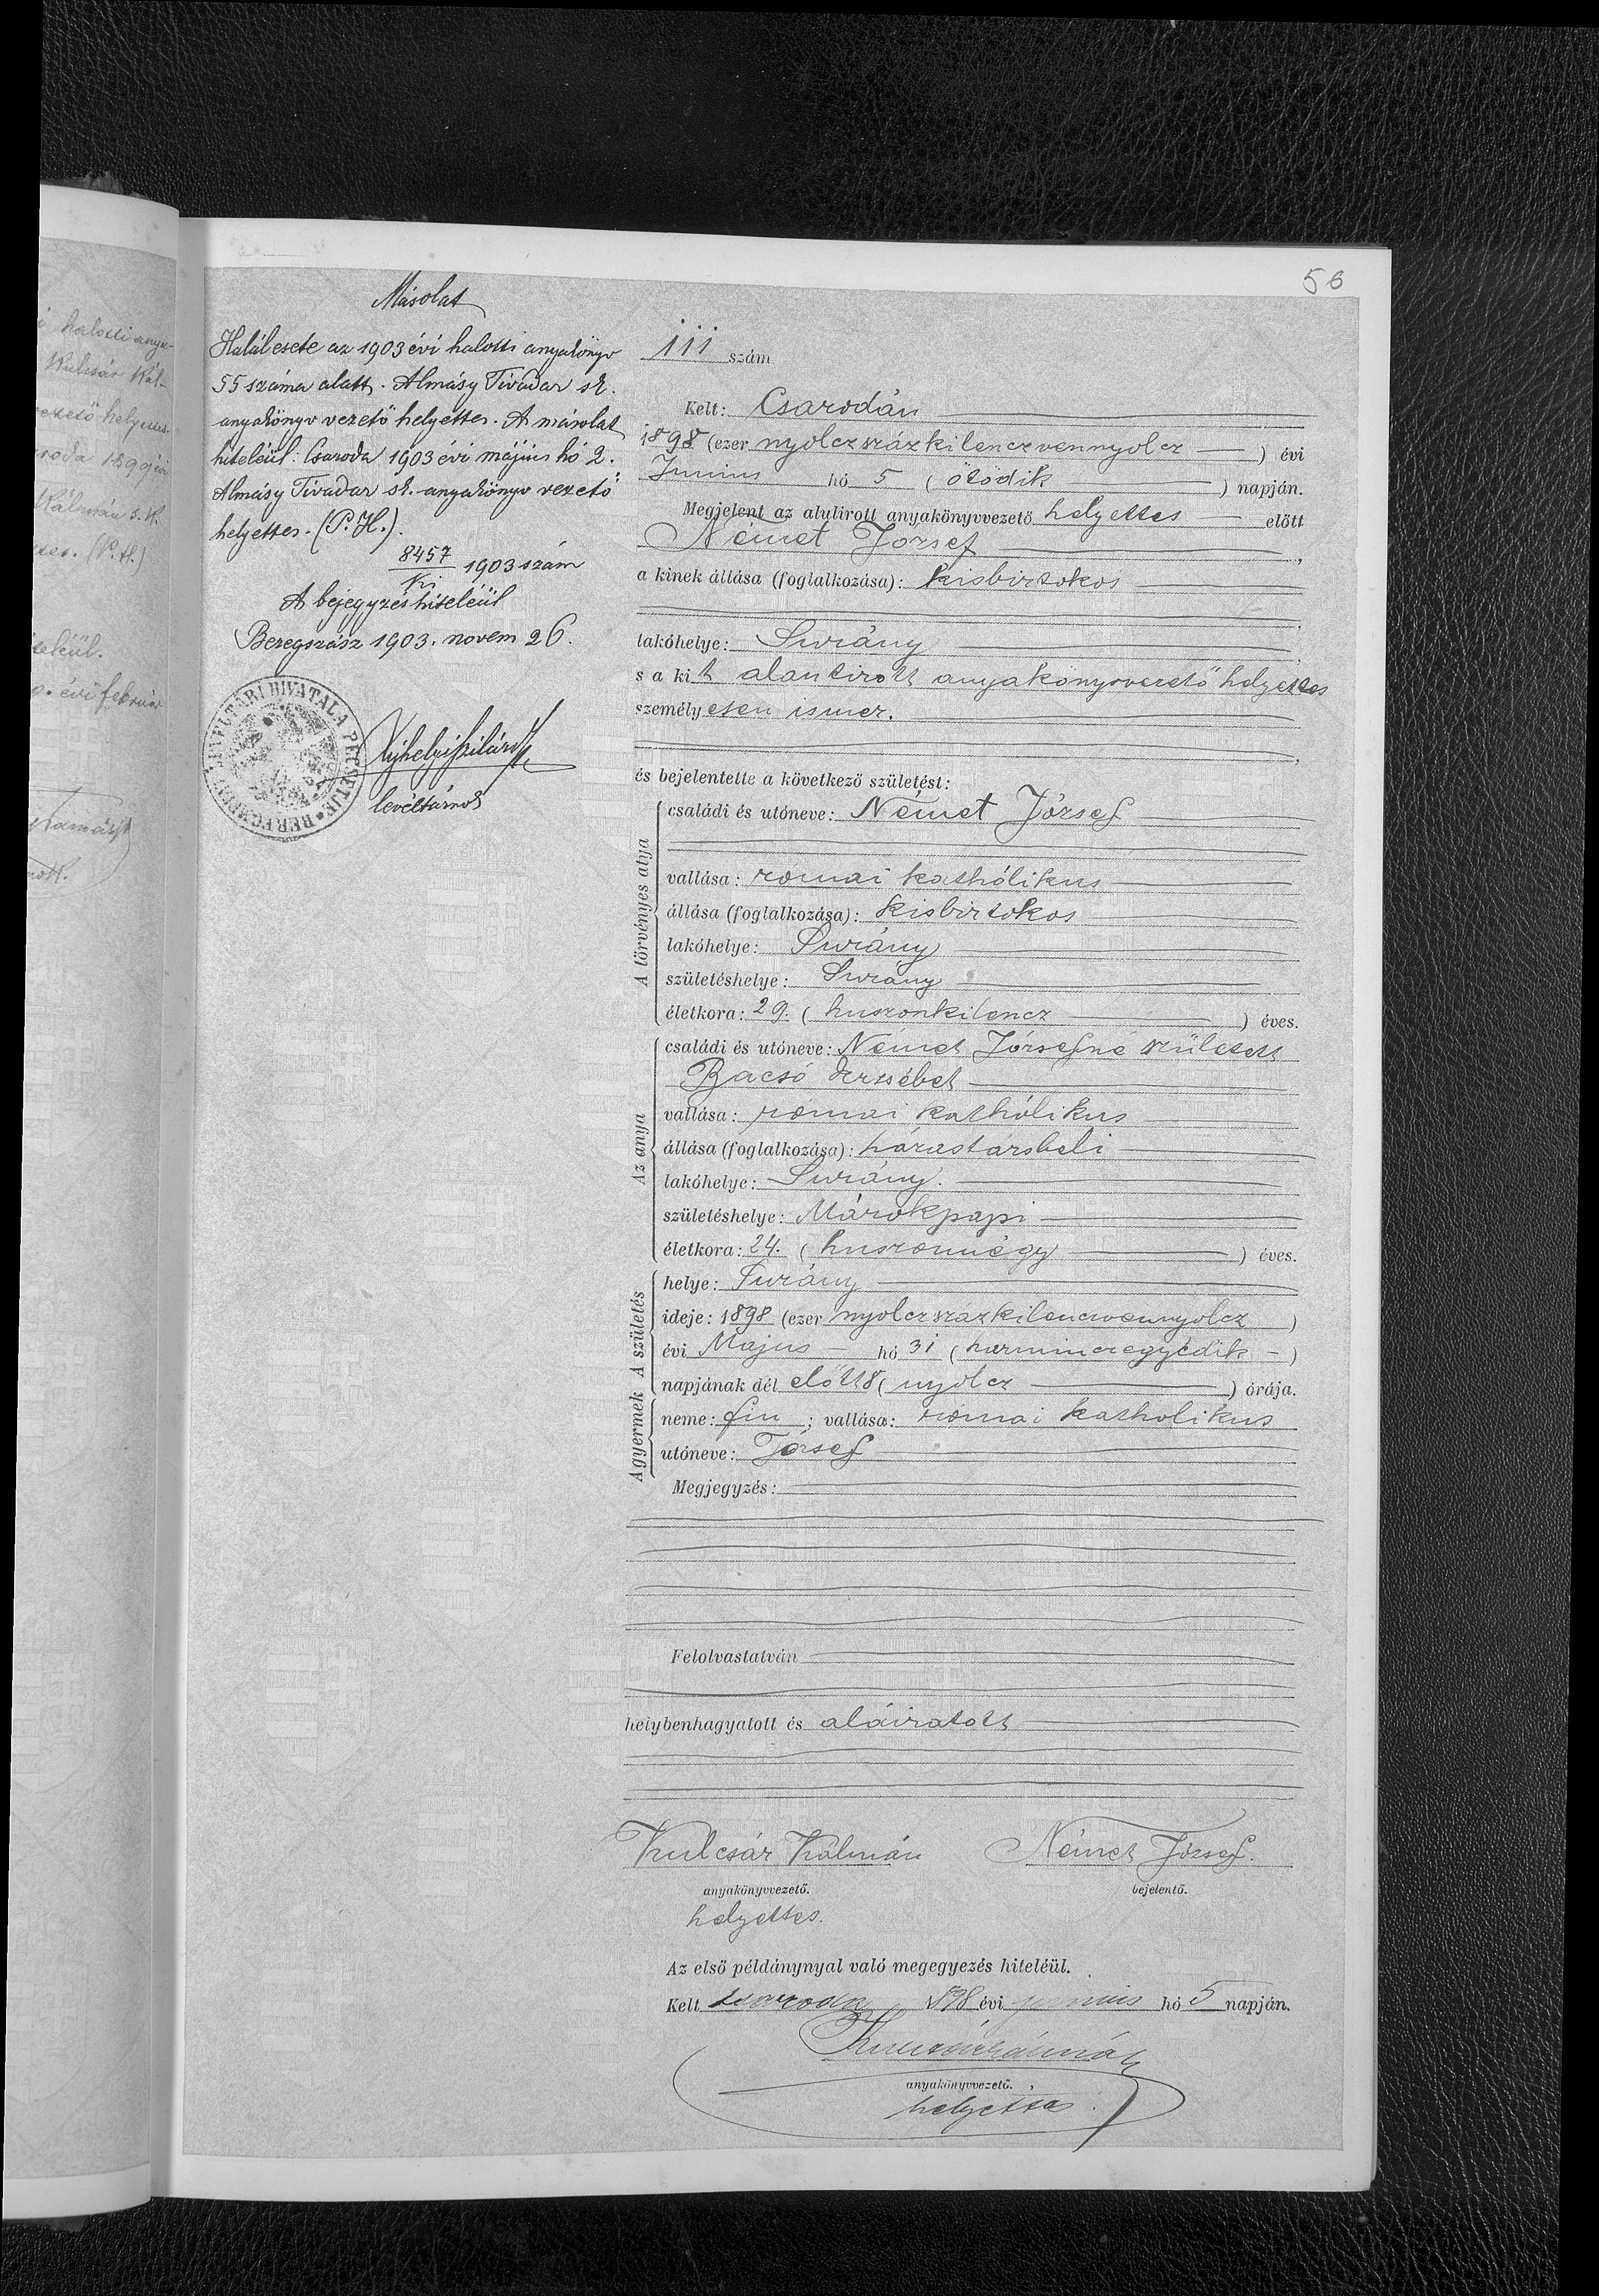 56
i halotti anya-
Kulcsár Kál-
vezető helyettes.
aroda 1899 évi
Kálmán s. k.
(P. H.)
teléül.
évi február
Másolat
Halálesete az 1903 évi halotti anyakönyv
55 száma alatt. Almásy Tivadar sk.
anyakönyv vezető helyettes. A másolat
hiteléül: Csaroda 1903 évi május hó 2.
Almásy Tivadar sk. anyakönyv vezető
helyettes. (P. H.)
8457
ki 1903 szám
A bejegyzés hiteléül
Beregszász 1903. novem 26.
levéltárnok
111 szám
Kelt: Csarodán
1898 (ezer nyolczszázkilenczvennyolcz ) évi
Junius hó 5 ( ötödik ) napján.
Megjelent az alulirott anyakönyvvezető helyettes előtt
Német József
a kinek állása (foglalkozása): kisbirtokos
lakóhelye: Surány
s a kit alantirott anyakönyvvezető helyettes
személyesen ismer.
és bejelentette a következő születést:
A törvényes atya
családi és utóneve: Német József
vallása: római kathólikus
állása (foglalkozása): kisbirtokos
lakóhelye: Surány
születéshelye: Surány
életkora: 29. ( huszonkilencz ) éves.
Az anya
családi és utóneve: Német Józsefné született
Bacsó Erzsébet
vallása: római kathólikus
állása (foglalkozása): házastársbeli
lakóhelye: Surány.
születéshelye: Márokpapi
életkora: 24. ( huszonnégy ) éves.
A születés
helye: Surány
ideje: 1898 (ezer nyolczszázkilenczvennyolcz )
évi Majus hó 31 ( harminczegyedik - )
napjának dél előtt 8 ( nyolcz ) órája.
A gyermek
neme: fiu ; vallása: római katholikus
utóneve: József
Megjegyzés:
Felolvastatván
helybenhagyatott és aláiratott
Kulcsár Kálmán Német József.
anyakönyvvezető. bejelentő.
helyettes.
Az első példánynyal való megegyezés hiteléül.
Kelt Csaroda 1898 évi junius hó 5 napján.
Kulcsár Kálmán
anyakönyvvezető.
helyettes.